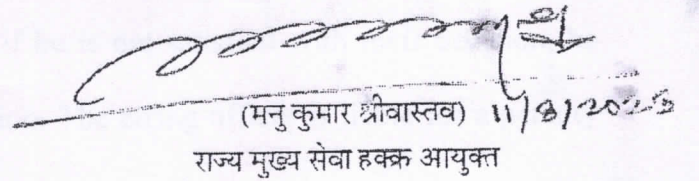 (मनु कुमार श्रीवास्तव) 11/8/2025
राज्य मुख्य सेवा हक्क आयुक्त